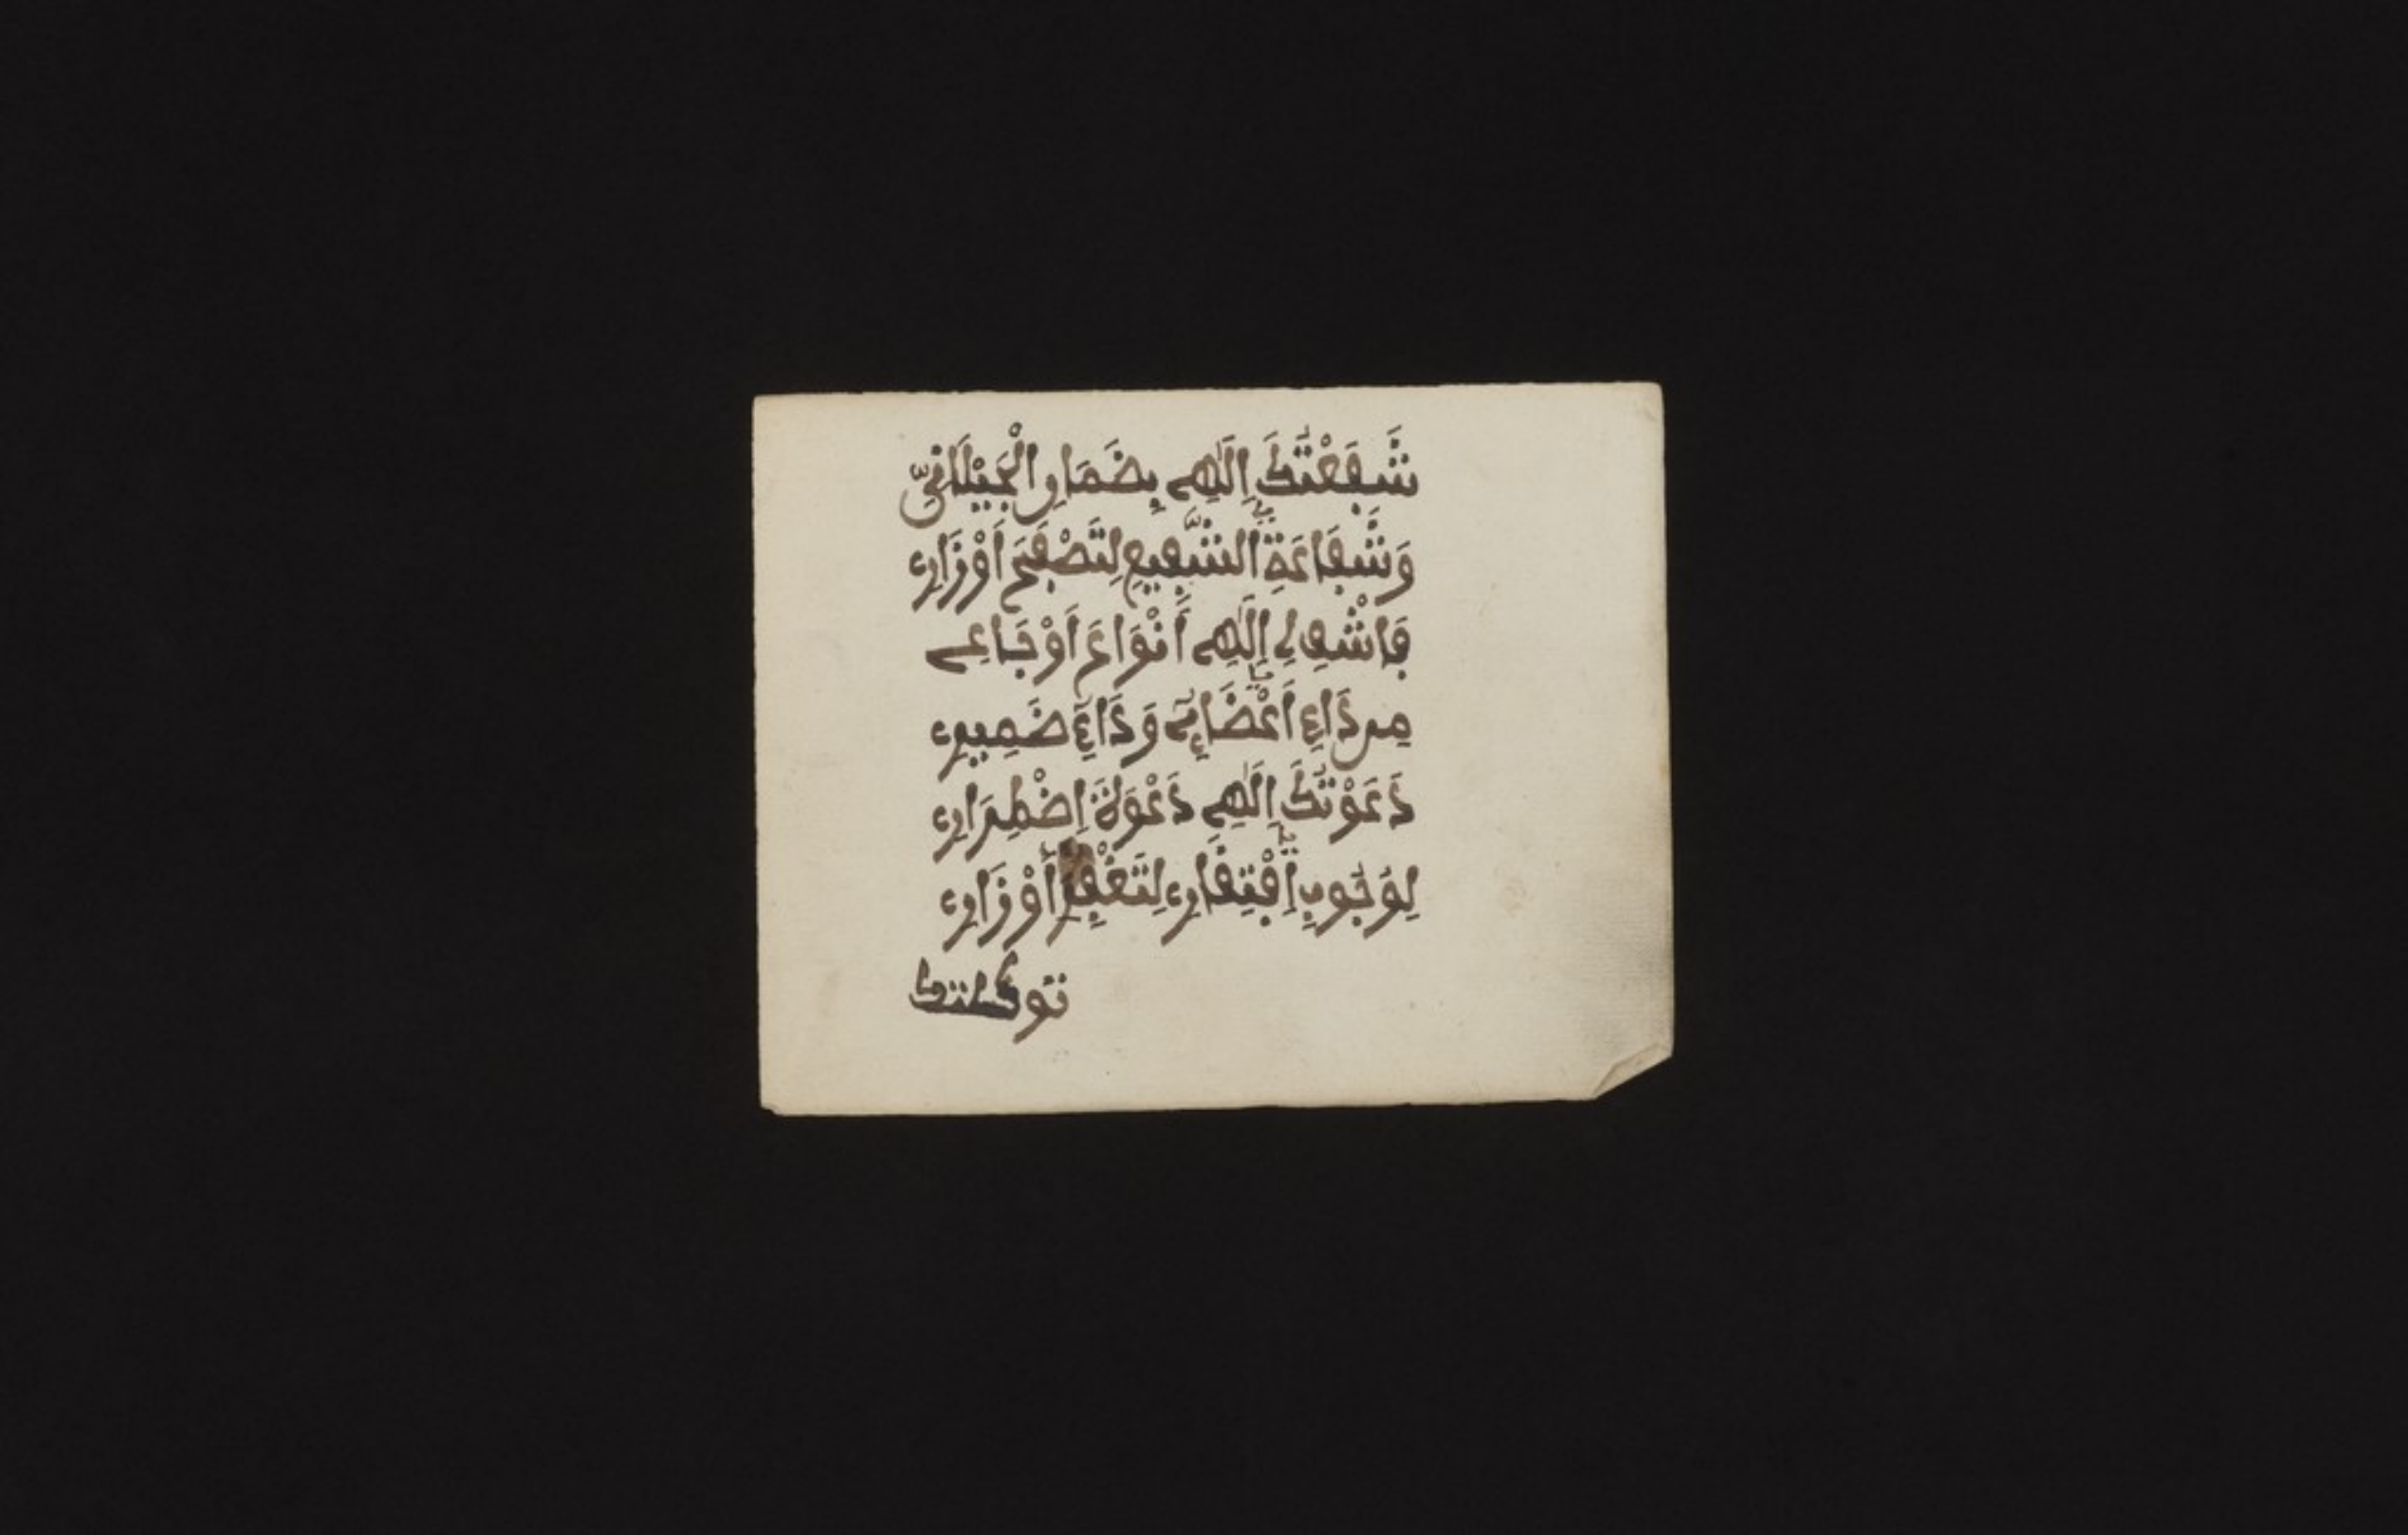 شَفَعْتُكَ إِلَٰهِي بِضَمَانِ الْجَيْلَانِيِّ
وَشَفَاعَةِ الشَّفِيعِ لِتَصْفَحَ أَوْزَارِي
فَاشْفِ لِي إِلَٰهِي أَنْوَاعَ أَوْجَاعِي
مِن دَاءِ أَعْضَائِي وَدَاءِ ضَمِيرِي
دَعَوْتُكَ إِلَٰهِي دَعْوَةَ إِضْطِرَارِي
لِوُجُوبِ إِفْتِقَارِي لِتَغْفِرَ أَوْزَارِي
توكلتك